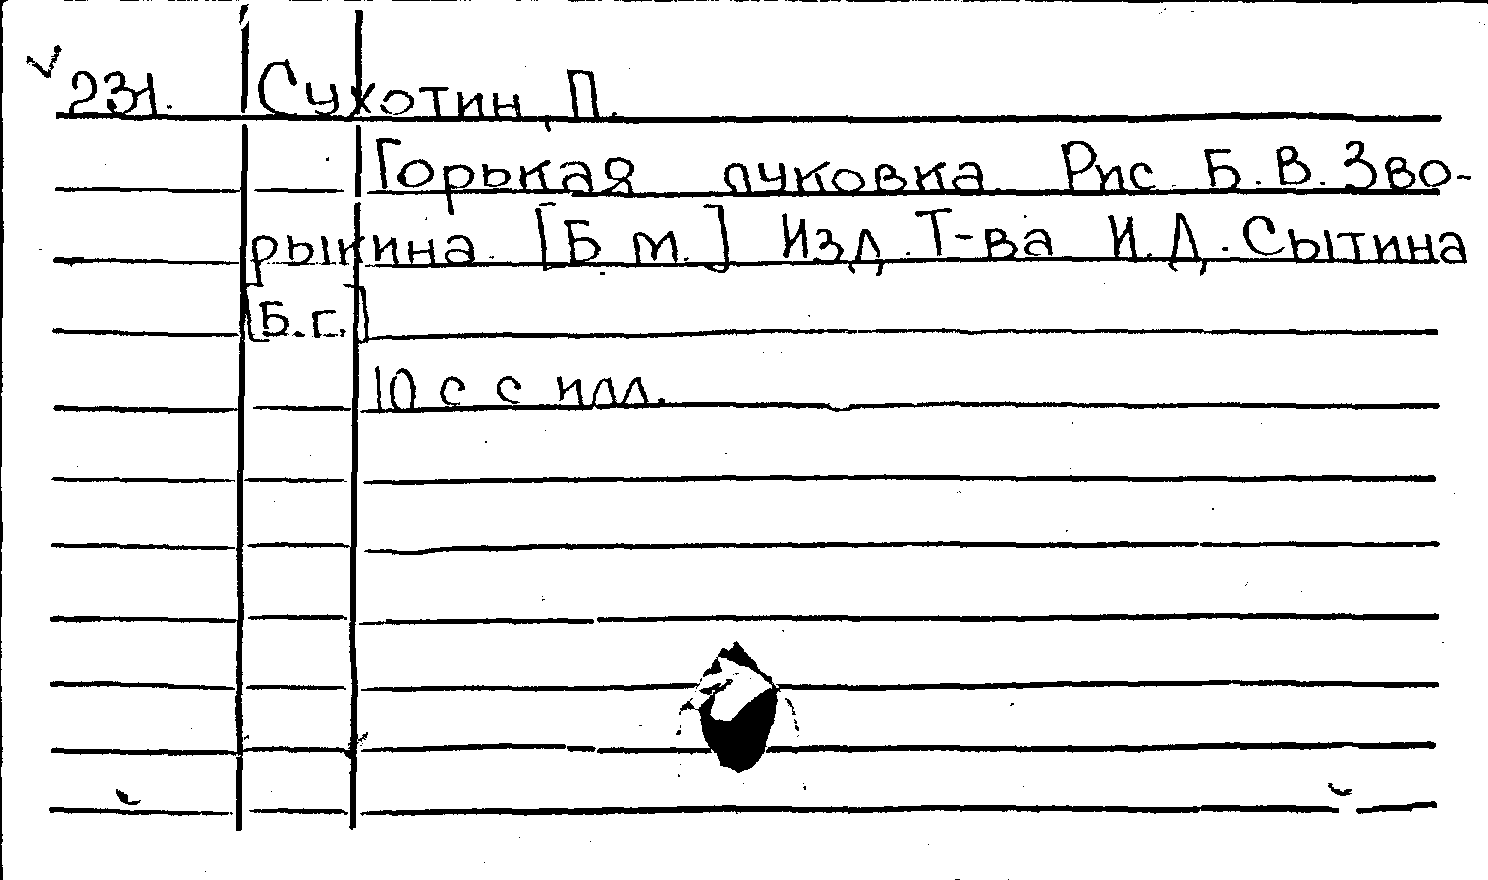 231. Сухотин, П.
Горькая луковка. Рис. Б.В. Зво-
рыкина. [Б.м.] Изд. Т-ва И.Д. Сытина
[Б.г.]
10 с. с илл.